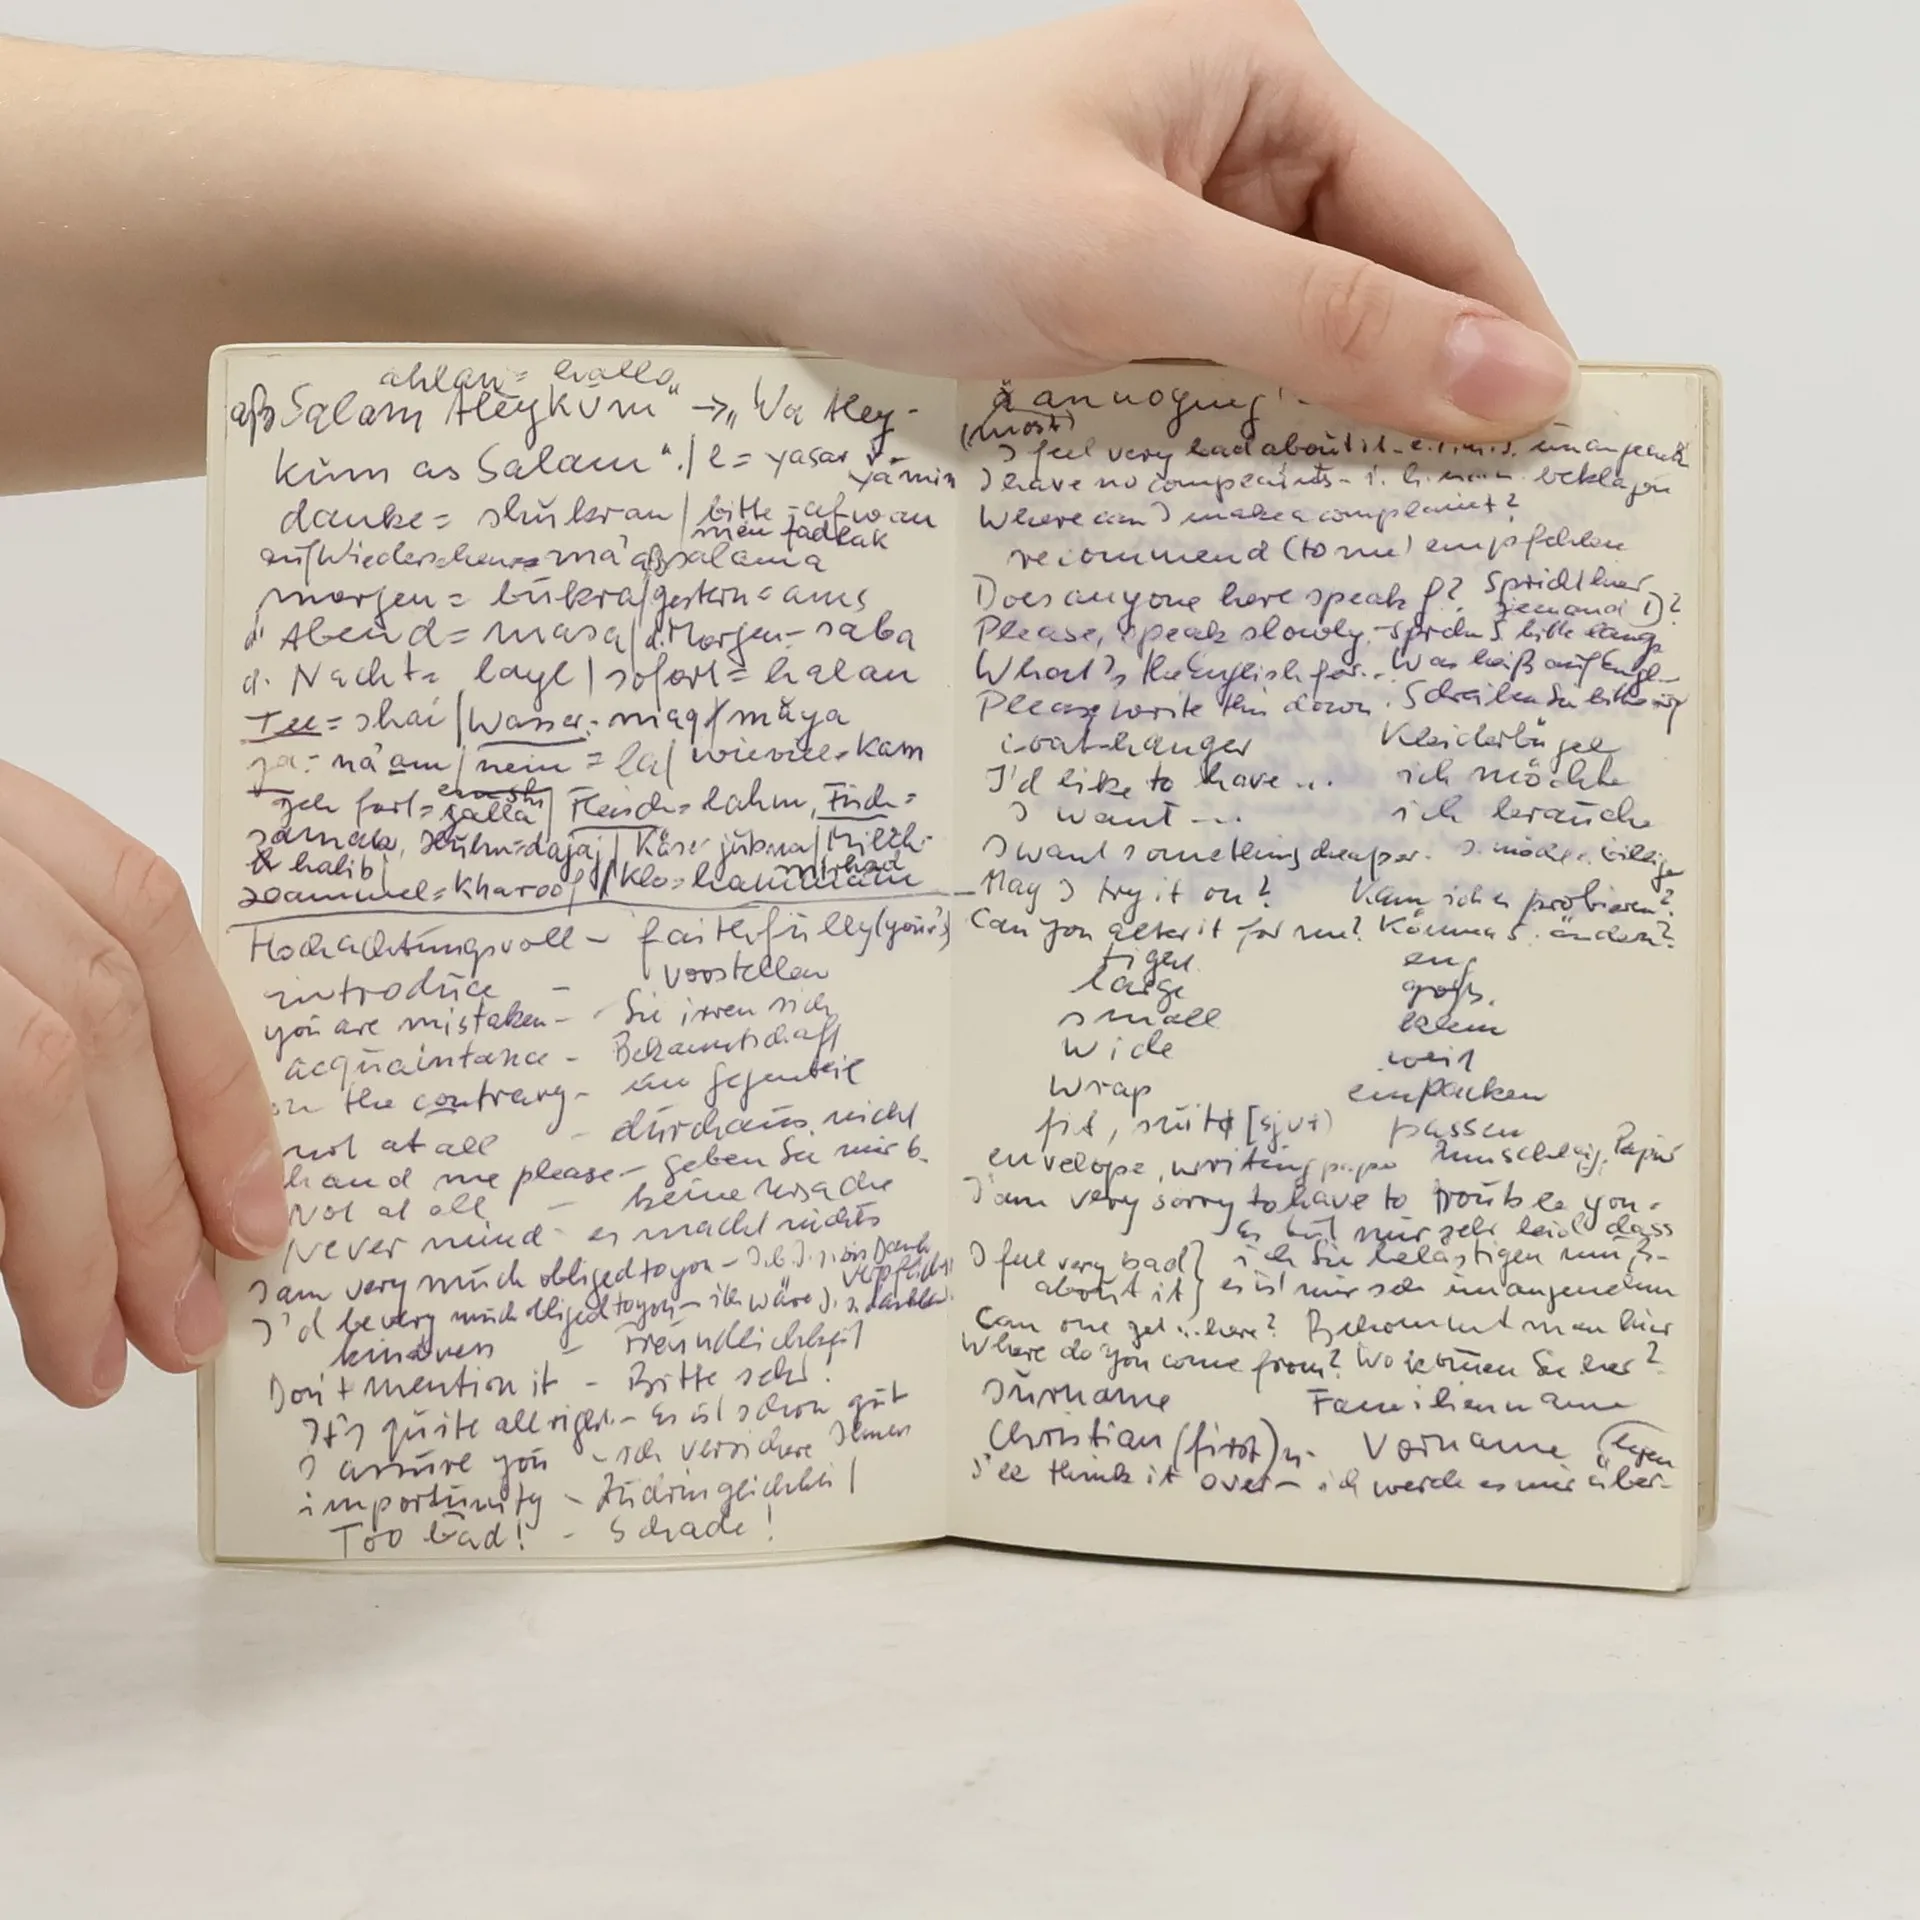 ahlan = hallo
"Salam Aleykum" → "Wa Aley-
kum as Salam". | l = yasar
yamin
danke = shukran | bitte = afwan
min fadlak
auf Wiedersehen = ma'aßsalama
morgen = bukra | gestern = ams
d. Abend = masa | d. Morgen = saba
d. Nacht = layl | sofort = halan
Tee = shai | Wasser = / maya
ja = na'am | nein = la | wieviel = kam
geh fort = yalla | Fleisch = lahm, Fisch =
samak, Huhn = dajaj | Käse = jubna | Milch =
halib |
Hammel = Kharoof | Klo = hammam
Hochachtungsvoll – faithfully (your's)
introduce – vorstellen
you are mistaken – Sie irren sich
acquaintance – Bekanntschaft
on the contrary – im Gegenteil
not at all – durchaus nicht
hand me please – geben Sie mir b.
Not at all – keine Ursache
Never mind – es macht nichts
I am very much obliged to you – Dank
verpflichtet
I'd be very much obliged to you – ich wäre I. s. dankbar
kindness – Freundlichkeit
Don't mention it – Bitte sehr!
It's quite all right – Es ist schon gut
I assure you – ich versichere Ihnen
importunity – Zudringlichkeit
Too bad! – Schade!
annoying!
(most)
I feel very bad about it – unangenehm
I have no complaints – i. h. beklagen
Where can I make a complaint?
recommend (to me) empfehlen
Does anyone here speak G? Spricht hier
jemand D?
Please, speak slowly. – Sprechen S. bitte langs.
What's the English for... Was heißt auf Engl. –
Please write this down. Schreiben Sie bitte auf
coat-hanger Kleiderbügel
I'd like to have ... ich möchte
I want ... ich brauche
I want something cheaper. I. möchte billiger
May I try it on? Kann ich es probieren?
Can you alter it for me? Können S. ändern?
tight eng
large groß.
small klein
wide weit
wrap einpacken
fit, suit [sjut] passen
envelope, writing paper Umschlag, Papier
I am very sorry to have to trouble you.
Es tut mir sehr leid dass
I feel very bad } ich Sie belästigen muß –
about it } es ist mir sehr unangenehm
Can one get ... here? Bekommt man hier
Where do you come from? Wo kommen Sie her?
Surname Familienname
Christian (first) n. Vorname
(legen
I'll think it over – ich werde es mir über-